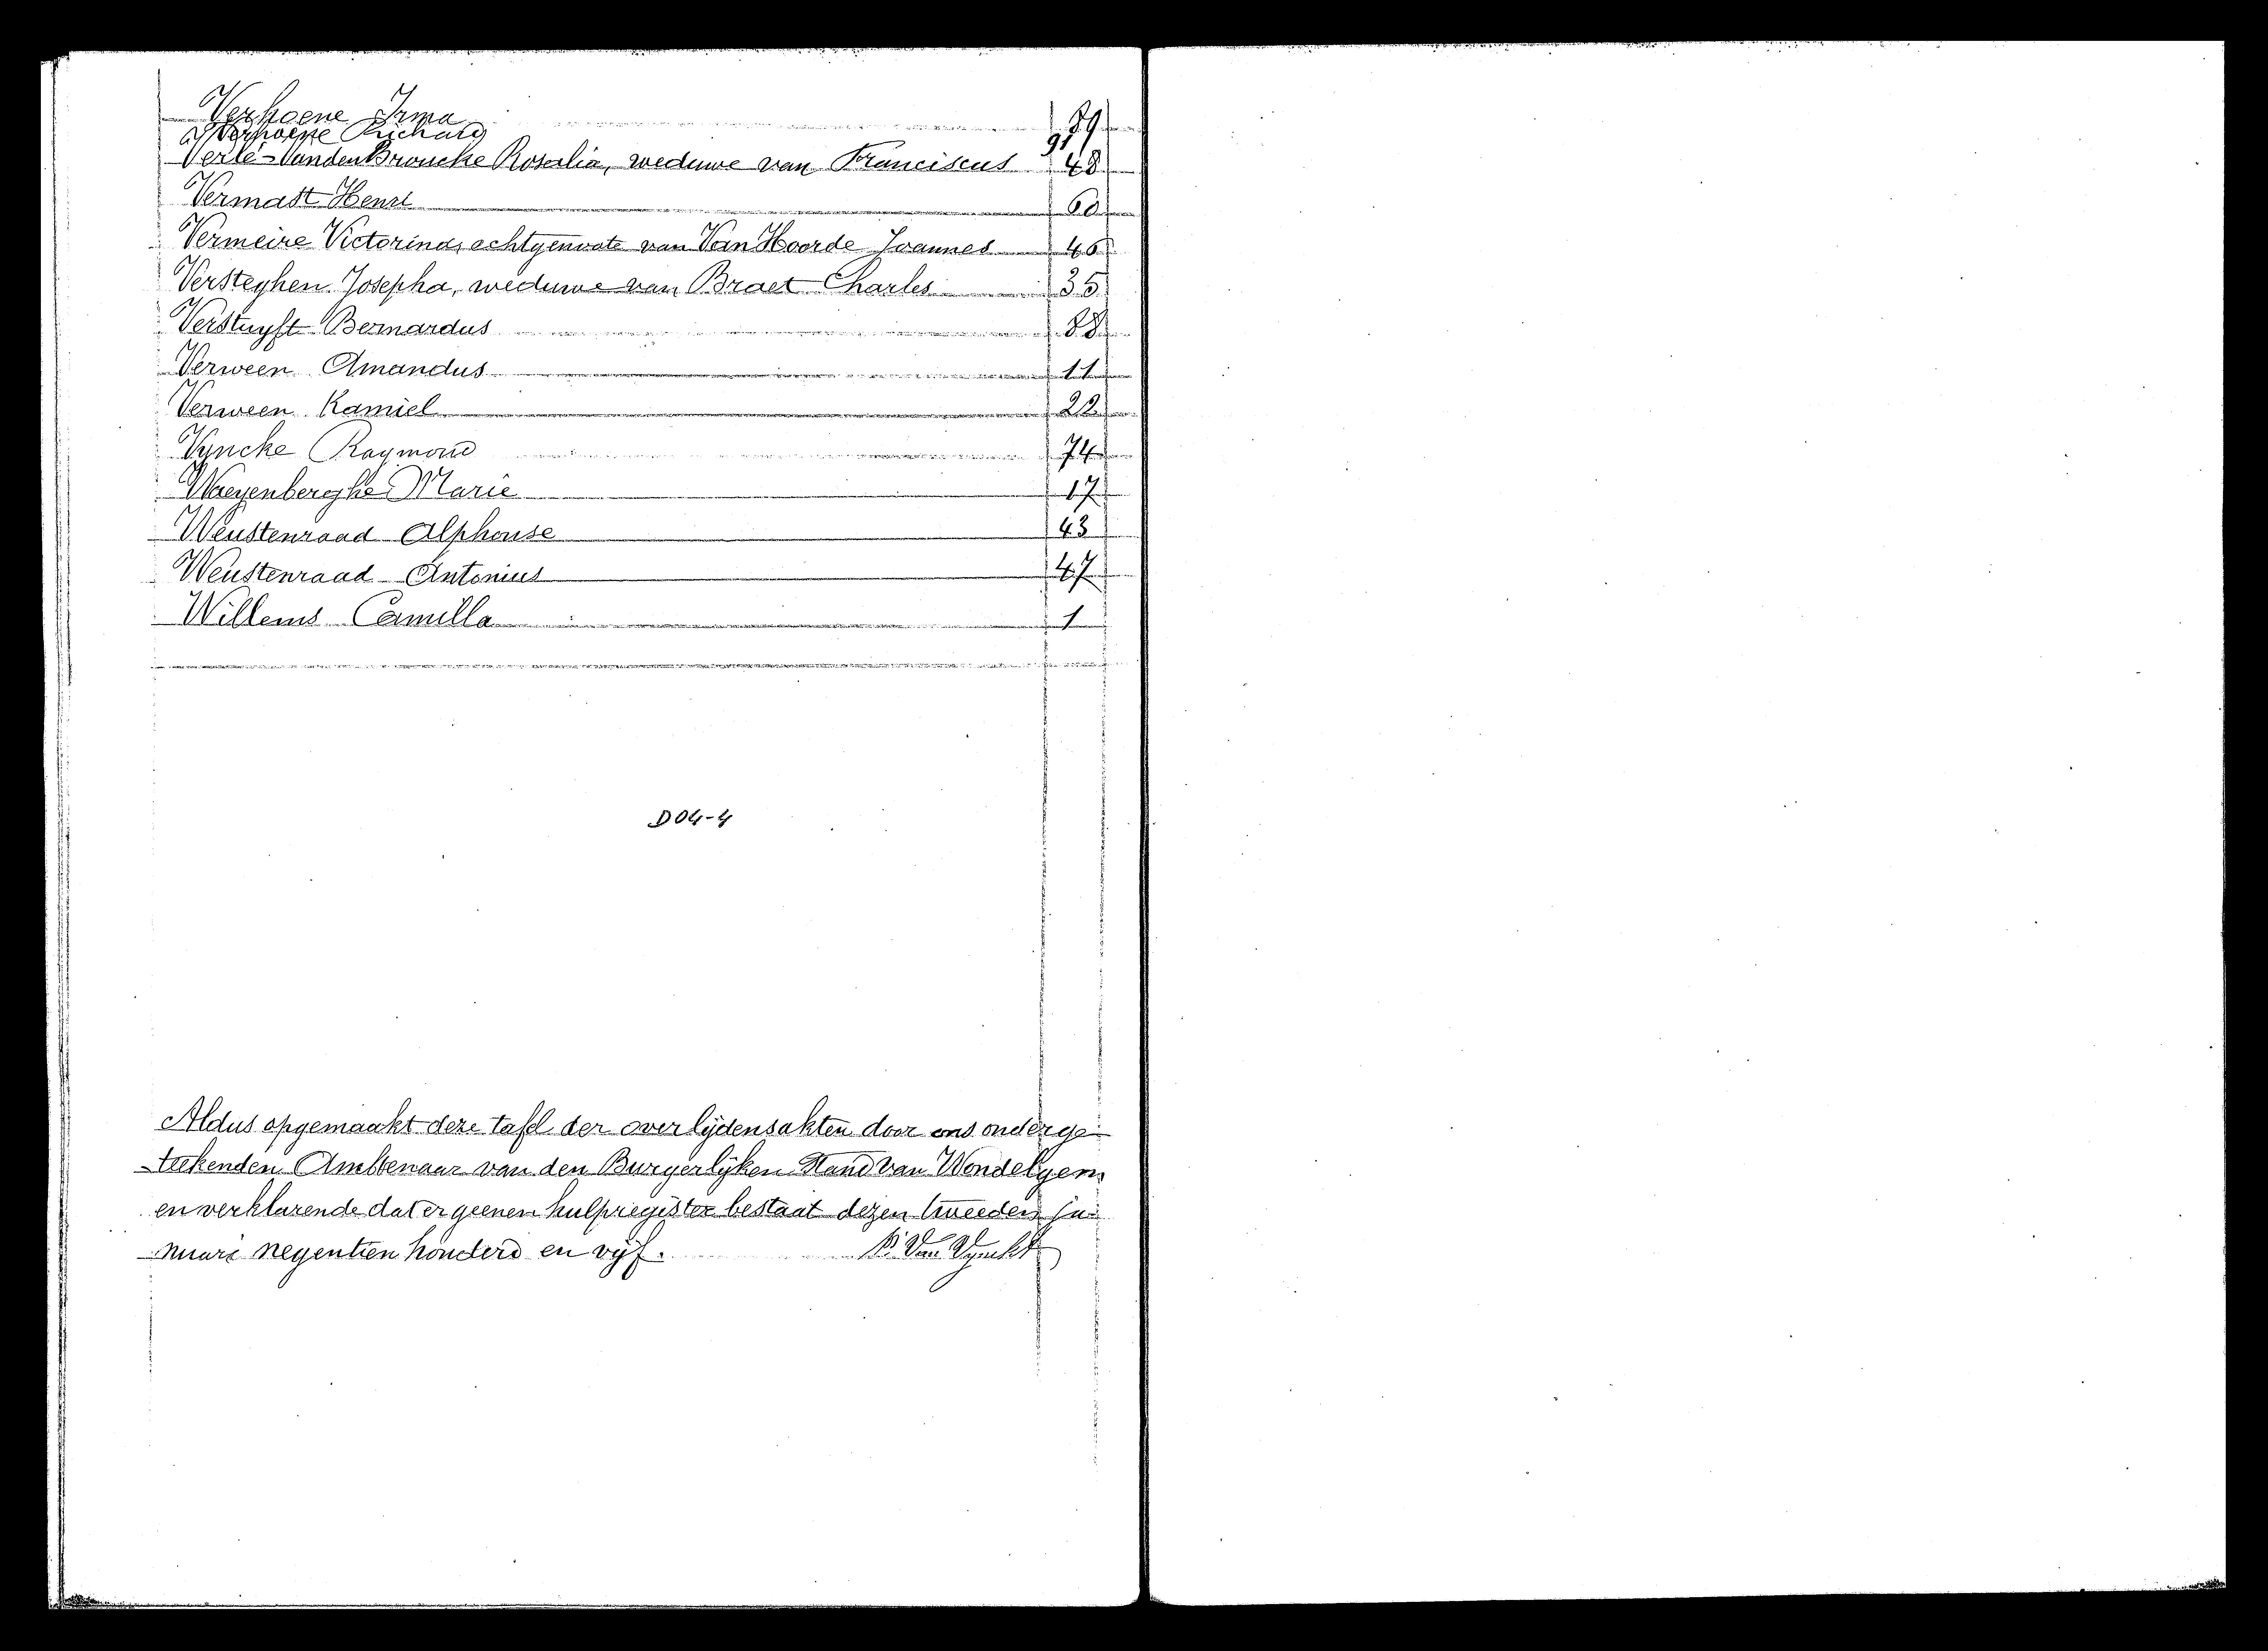 Verhoene Irma 89
Verhoene Richard 91
Verlé-Vanden Broucke Rosalia, weduwe van Franciscus 48
Vermast Henri 60
Vermeire Victorina, echtgenoote van Van Hoorde Joannes 46
Versteghen Josepha, weduwe van Braet Charles 35
Verstuyft Bernardus 88
Verween Amandus 11
Verween Kamiel 22
Vyncke Raymond 74
Waeyenberghe Marie 17
Weustenraad Alphonse 43
Weustenraad Antonius 47
Willems Camilla 1
D04-4
Aldus opgemaakt deze tafel der overlijdensakten door ons onderge-
teekenden Ambtenaar van den Burgerlijken Stand van Wondelgem
en verklarende dat er geenen hulpregister bestaat dezen tweeden ja-
nuari negentien honderd en vijf.